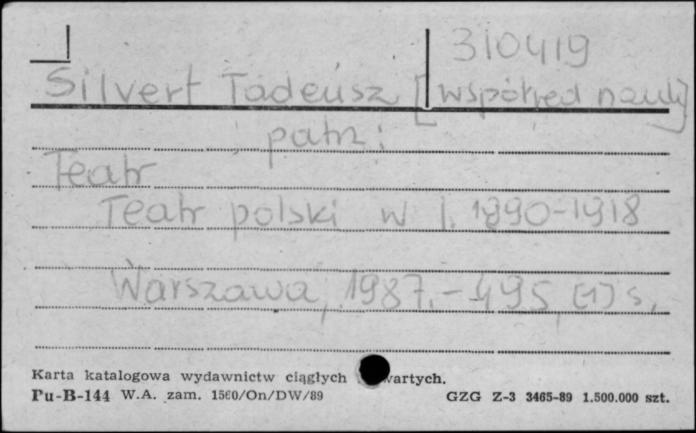 310419
Silvert Tadeusz [współred nauk]
patrz:
Teatr
Teatr polski w l. 1890-1918
Warszawa, 1987. - 495, [1] s.
Karta katalogowa wydawnictw ciągłych wartych.
Pu-B-144 W.A. zam. 1560/On/DW/89 GZG Z-3 3465-89 1.500.000 szt.